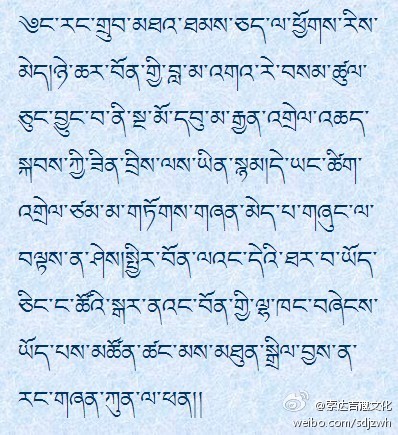 ༄༅ང་རང་གྲུབ་མཐའ་ཐམས་ཅད་ལ་ཕྱོགས་རིས་
མེད།ཉེ་ཆར་བོན་གྱི་བླ་མ་འགའ་རེ་བསམ་ཚུལ་
ཅུང་བྱུང་བ་ནི་སྔ་མོ་དབུ་མ་རྒྱན་འགྲེལ་འཆད་
སྐབས་ཀྱི་ཟིན་བྲིས་ལས་ཡིན་སྙམ།དེ་ཡང་ཚིག་
འགྲེལ་ཙམ་མ་གཏོགས་གཞན་མེད་པ་གཞུང་ལ་
བལྟས་ན་ཤེས།སྤྱིར་བོན་ལའང་དེའི་ཐར་བ་ཡོད་
ཅིང་ང་ཚོའི་སྒར་ནའང་བོན་གྱི་ལྷ་ཁང་བཞེངས་
ཡོད་པས་མཚོན་ཚང་མས་མཐུན་སྒྲིལ་བྱས་ན་
རང་གཞན་ཀུན་ལ་ཕན།།
@索达吉堪布文化
weibo.com/sdjzwh